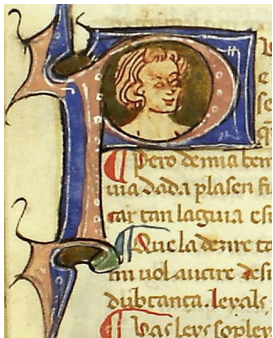 P
Pero de mia ben
uia dada plasen fi
tar tan laguia es
Que la dezire ta
mi uol aucire desi
dubtanca. leyals
Pas leys sopley